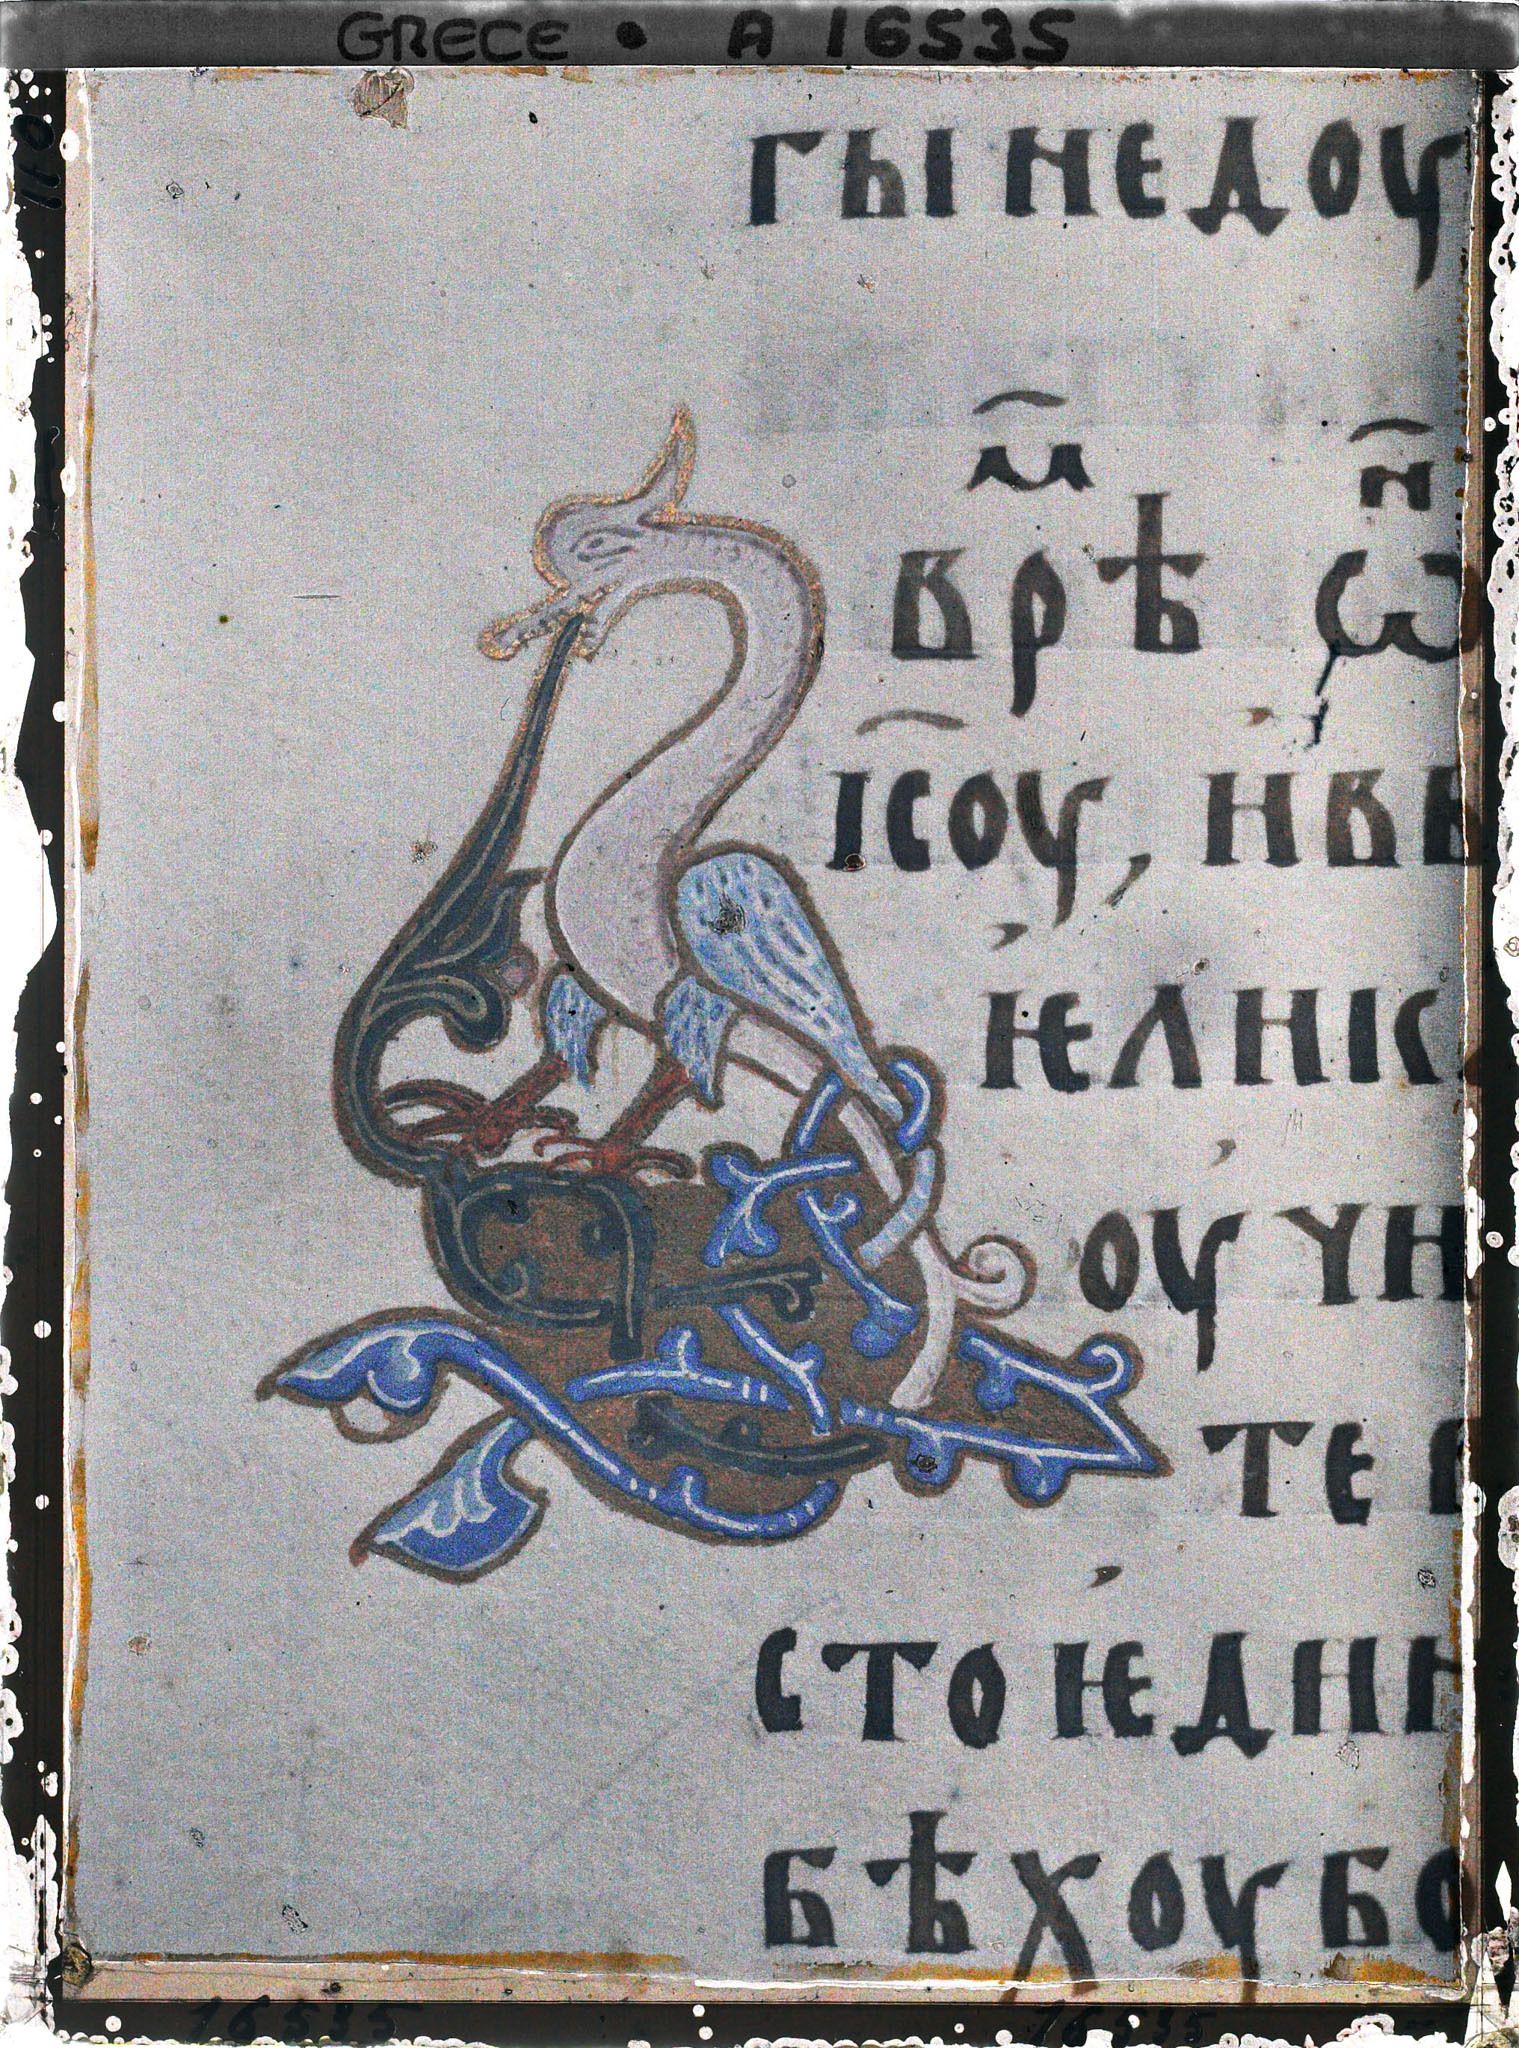 GRECE • A 16535
гы недоу
м҃ н҃
врѣ ѡ
і҃соу, и в
ѥлик
оучи
те
сто ѥди
бѣхоу бо
16535 16535